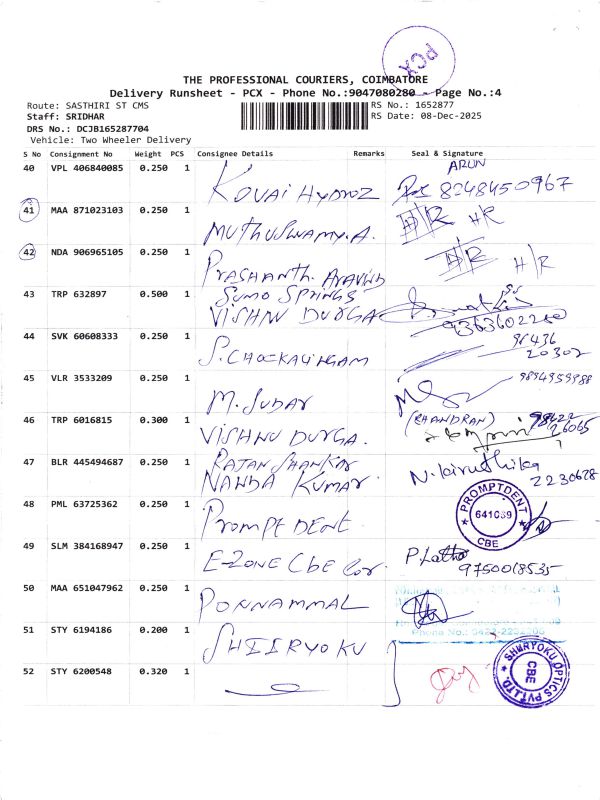 PCX
THE PROFESSIONAL COURIERS, COIMBATORE
Delivery Runsheet - PCX - Phone No.:9047080280 - Page No.:4
Route: SASTHIRI ST CMS RS No.: 1652877
Staff: SRIDHAR RS Date: 08-Dec-2025
DRS No.: DCJB165287704
Vehicle: Two Wheeler Delivery
S No Consignment No Weight PCS Consignee Details Remarks Seal & Signature
ARUN
40 VPL 406840085 0.250 1 KOVAI HYDROZ 8048450967
41 MAA 871023103 0.250 1 MUTHUSWAMY.A. H/R H/R
42 NDA 906965105 0.250 1 PRASHANTH. ARAVIND H/R H/R
43 TRP 632897 0.500 1 SUMO SPRINGS
VISHNU DURGA 9363602280
44 SVK 60608333 0.250 1 S.CHOCKALINGAM 98436
20302
45 VLR 3533209 0.250 1 M.SUDAR 9894959988
46 TRP 6016815 0.300 1 VISHNU DURGA. (CHANDRAN) 98422
26065
47 BLR 445494687 0.250 1 RAJAN SHANKAR
NANDA KUMAR. N.kiruthika
2230628
48 PML 63725362 0.250 1 PROMPT DENT. PROMPTDENT 641039 CBE
49 SLM 384168947 0.250 1 E-ZONE CBE Cor. P.Latha
9750018535
50 MAA 651047962 0.250 1 PONNAMMAL
Phone No.: 0422-
51 STY 6194186 0.200 1 SHIIRYOKU
52 STY 6200548 0.320 1 SHIIRYOKU OPTICS PVT.LTD. CBE